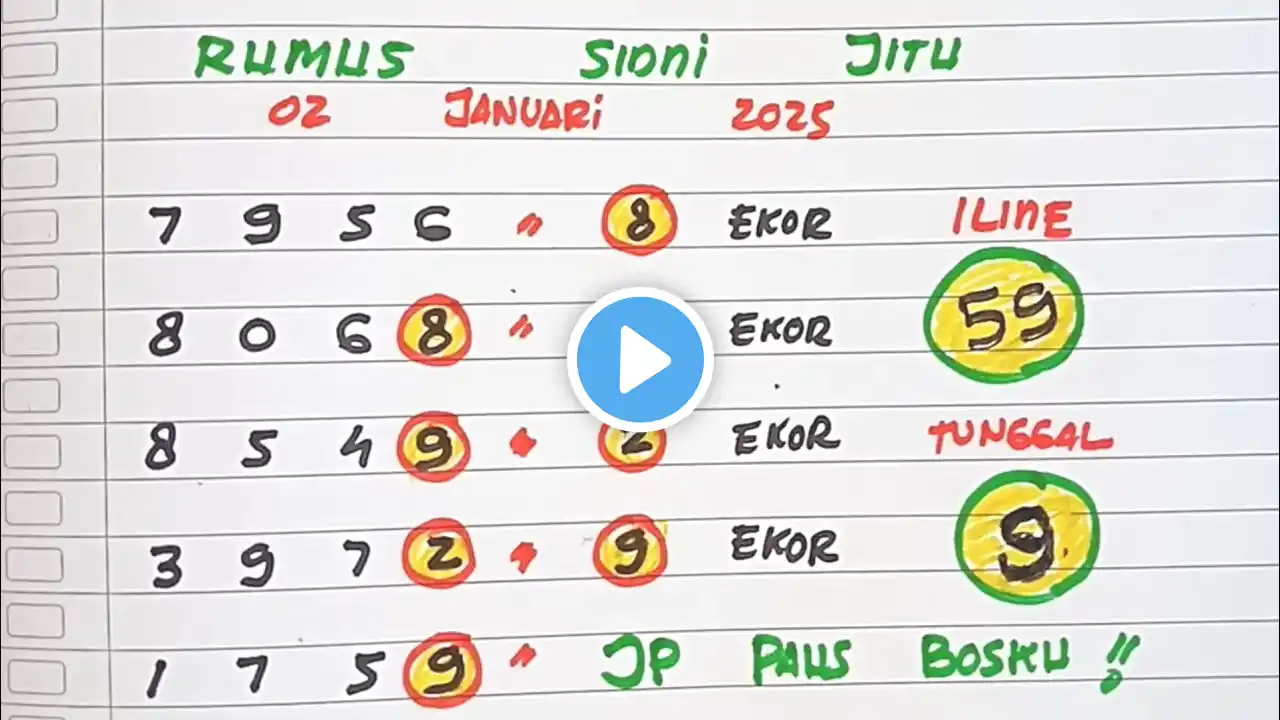 RUMUS SIDNI JITU
02 JANUARI 2025
7 9 5 6 " 8 EKOR 1LINE
8 0 6 8 " EKOR 59
8 5 4 9 2 EKOR TUNGGAL
3 9 7 2 9 EKOR 9
1 7 5 9 " JP PAUS BOSKU !!